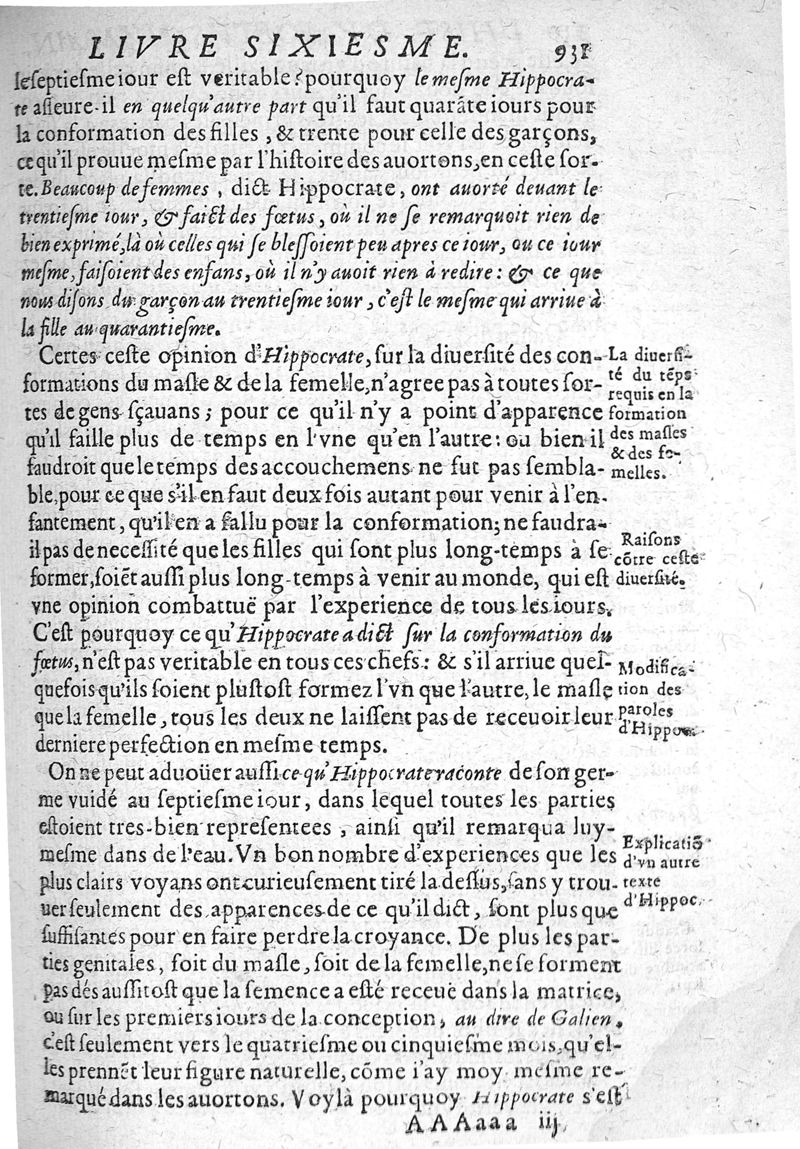 LIVRE SIXIESME. 931
le septiesme iour est veritable? pourquoy le mesme Hippocra-
te asseure-il en quelqu'autre part qu'il faut quarãte iours pour
la conformation des filles, & trente pour celle des garçons,
ce qu'il prouue mesme par l'histoire des auortons, en ceste sor-
te. Beaucoup de femmes, dict Hippocrate, ont auorté deuant le
trentiesme iour, & faict des fœtus, où il ne se remarquoit rien de
bien exprimé, là où celles qui se blessoient peu apres ce iour, ou ce iour
mesme, faisoient des enfans, où il n'y auoit rien à redire: & ce que
nous disons du garçon au trentiesme iour, c'est le mesme qui arriue à
la fille au quarantiesme.
Certes ceste opinion d'Hippocrate, sur la diuersité des con-
formations du masle & de la femelle, n'agree pas à toutes sor-
tes de gens sçauans; pour ce qu'il n'y a point d'apparence
qu'il faille plus de temps en l'vne qu'en l'autre: ou bien il
faudroit que le temps des accouchemens ne fut pas sembla-
ble, pour ce que s'il en faut deux fois autant pour venir à l'en-
fantement, qu'il en a fallu pour la conformation; ne faudra-
il pas de necessité que les filles qui sont plus long-temps à se
former, soiẽt aussi plus long-temps à venir au monde, qui est
vne opinion combattuë par l'experience de tous les iours.
C'est pourquoy ce qu'Hippocrate a dict sur la conformation du
fœtus, n'est pas veritable en tous ces chefs: & s'il arriue quel-
quefois qu'ils soient plustost formez l'vn que l'autre, le masle
que la femelle, tous les deux ne laissent pas de receuoir leur
derniere perfection en mesme temps.
On ne peut aduoüer aussi ce qu'Hippocrate raconte de son ger-
me vuidé au septiesme iour, dans lequel toutes les parties
estoient tres-bien representees, ainsi qu'il remarqua luy-
mesme dans de l'eau. Vn bon nombre d'experiences que les
plus clairs voyans ont curieusement tiré la dessus, sans y trou-
uer seulement des apparences de ce qu'il dict, sont plus que
suffisantes pour en faire perdre la croyance. De plus les par-
ties genitales, soit du masle, soit de la femelle, ne se forment
pas dés aussitost que la semence a esté receuë dans la matrice,
ou sur les premiers iours de la conception, au dire de Galien,
c'est seulement vers le quatriesme ou cinquiesme mois, qu'el-
les prennẽt leur figure naturelle, cõme i'ay moy mesme re-
marqué dans les auortons. Voylà pourquoy Hippocrate s'est
AAAaaa iij
La diuersi-
té du tẽps
requis en la
formation
des masles
& des fe-
melles.
Raisons
cõtre ceste
diuersité.
Modifica-
tion des
paroles
d'Hippoc.
Explicatiõ
d'vn autre
texte
d'Hippoc.